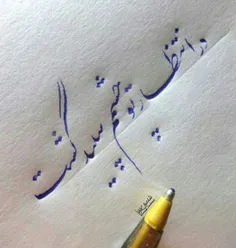 در انتظار تو چشمم سپید گشت